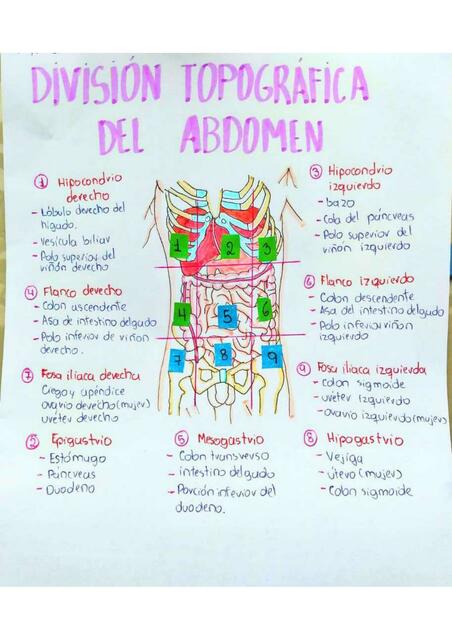 DIVISIÓN TOPOGRÁFICA
DEL ABDOMEN
① Hipocondrio
derecho
- Lóbulo derecho del
hígado.
- Vesícula biliar
- Polo superior del
riñón derecho
③ Hipocondrio
izquierdo
- bazo
- Cola del páncreas
- Polo superior del
riñón izquierdo
④ Flanco derecho
- Colon ascendente
- Asa de intestino delgado
- Polo inferior de riñon
derecho.
⑥ Flanco izquierdo
- Colon descendente
- Asa del intestino delgado
- Polo inferior riñon
izquierdo
1 2 3
4 5 6
7 8 9
⑦ Fosa ilíaca derecha
Ciego y apéndice
ovario derecho (mujer)
uréter derecho
⑨ Fosa ilíaca izquierda
- Colon sigmoide
- uréter izquierdo
- ovario izquierdo (mujer)
② Epigastrio
- Estómago
- Páncreas
- Duodeno
⑤ Mesogastrio
- Colon transverso
- intestino delgado
- Porción inferior del
duodeno.
⑧ Hipogastrio
- Vejiga
- útero (mujer)
- Colon sigmoide